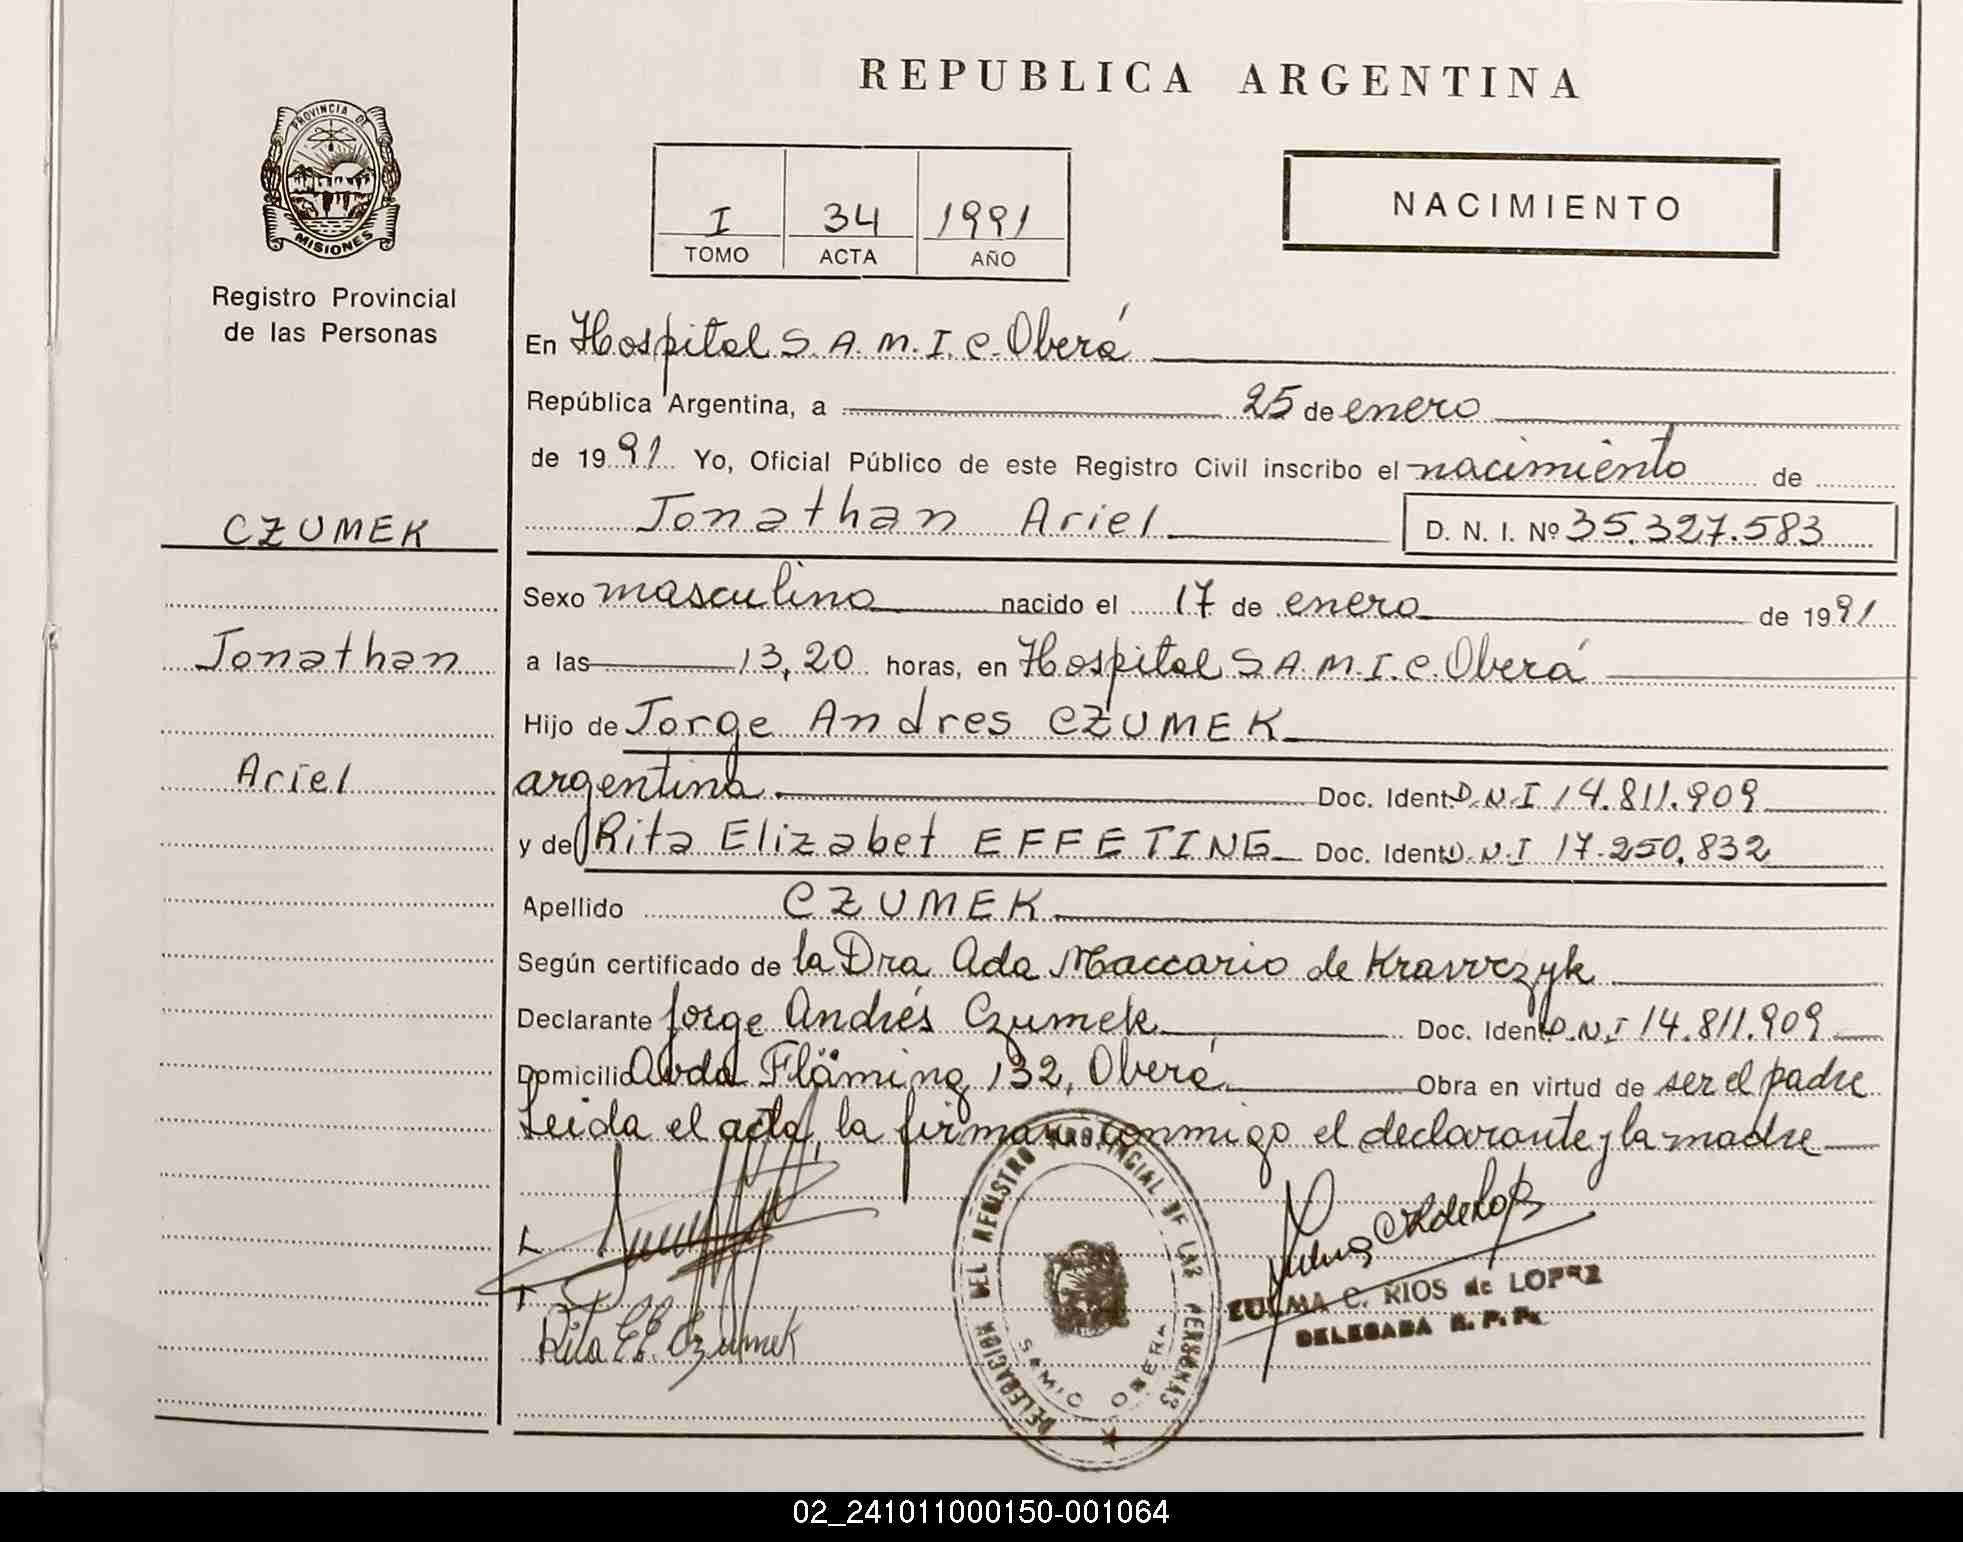 REPUBLICA ARGENTINA
PROVINCIA DE
MISIONES
Registro Provincial
de las Personas
I 34 1991
TOMO ACTA AÑO
NACIMIENTO
CZUMEK
Jonathan
Ariel
En Hospital S.A.M.I.C. Oberá
República Argentina, a 25 de enero
de 1991 Yo, Oficial Público de este Registro Civil inscribo el nacimiento de
Jonathan Ariel D. N. I. Nº 35.327.583
Sexo masculino nacido el 17 de enero de 1991
a las 13,20 horas, en Hospital S.A.M.I.C. Oberá
Hijo de Jorge Andres CZUMEK
argentina Doc. Ident. D.N.I 14.811.909
y de Rita Elizabet EFFETING Doc. Ident. D.N.I 17.250.832
Apellido CZUMEK
Según certificado de la Dra Ada Maccario de Krawczyk
Declarante Jorge Andrés Czumek Doc. Ident. D.N.I 14.811.909
Domicilio Avda Fläming 132, Oberá Obra en virtud de ser el padre
Leida el acta, la firman conmigo el declarante y la madre
Rita El. Czumek
DELEGACION DEL REGISTRO PROVINCIAL DE LAS PERSONAS
SAMIC OBERA
ZULMA C. RIOS de LOPEZ
DELEGADA R. P. P.
02_241011000150-001064